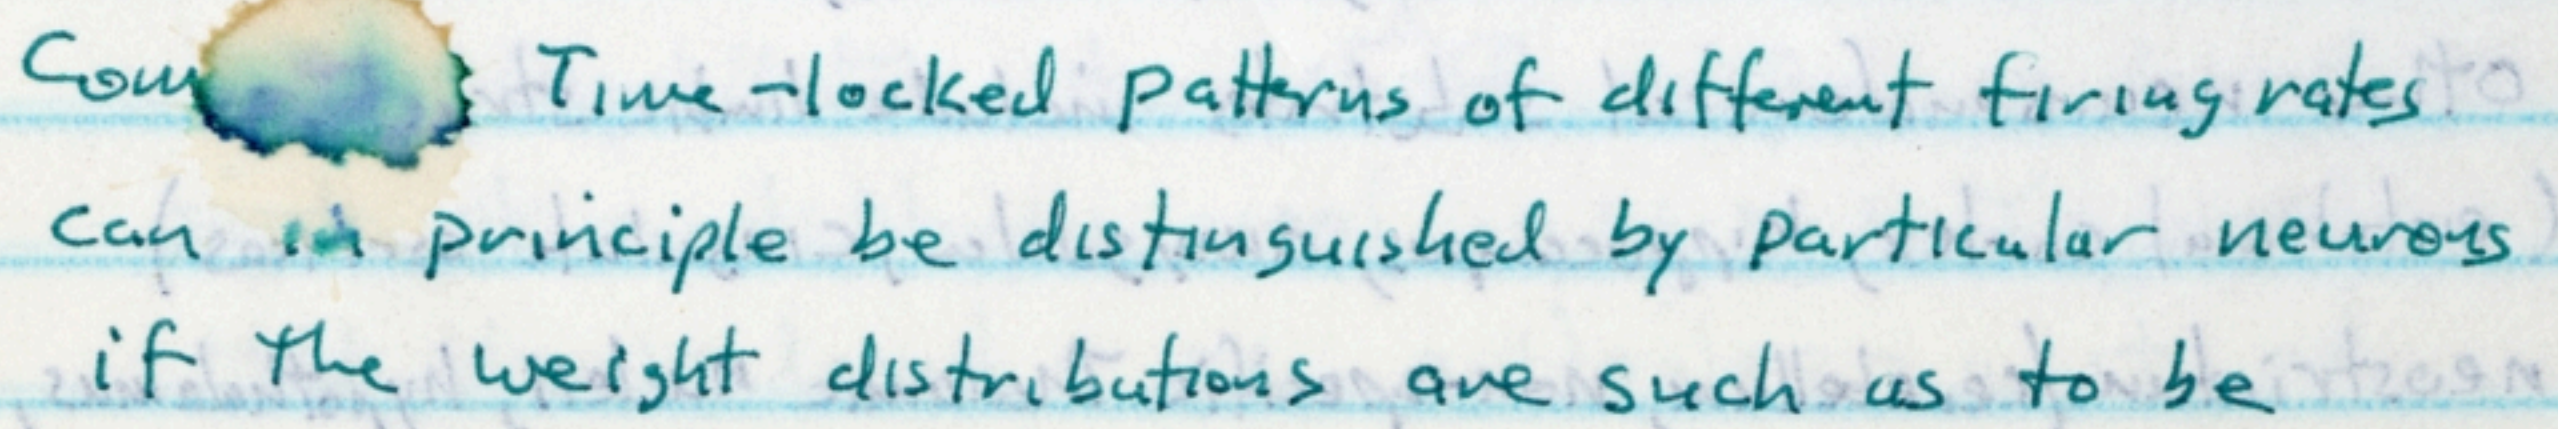 Time-locked patterns of different firing rates
can in principle be distinguished by particular neurons
if the weight distributions are such as to be